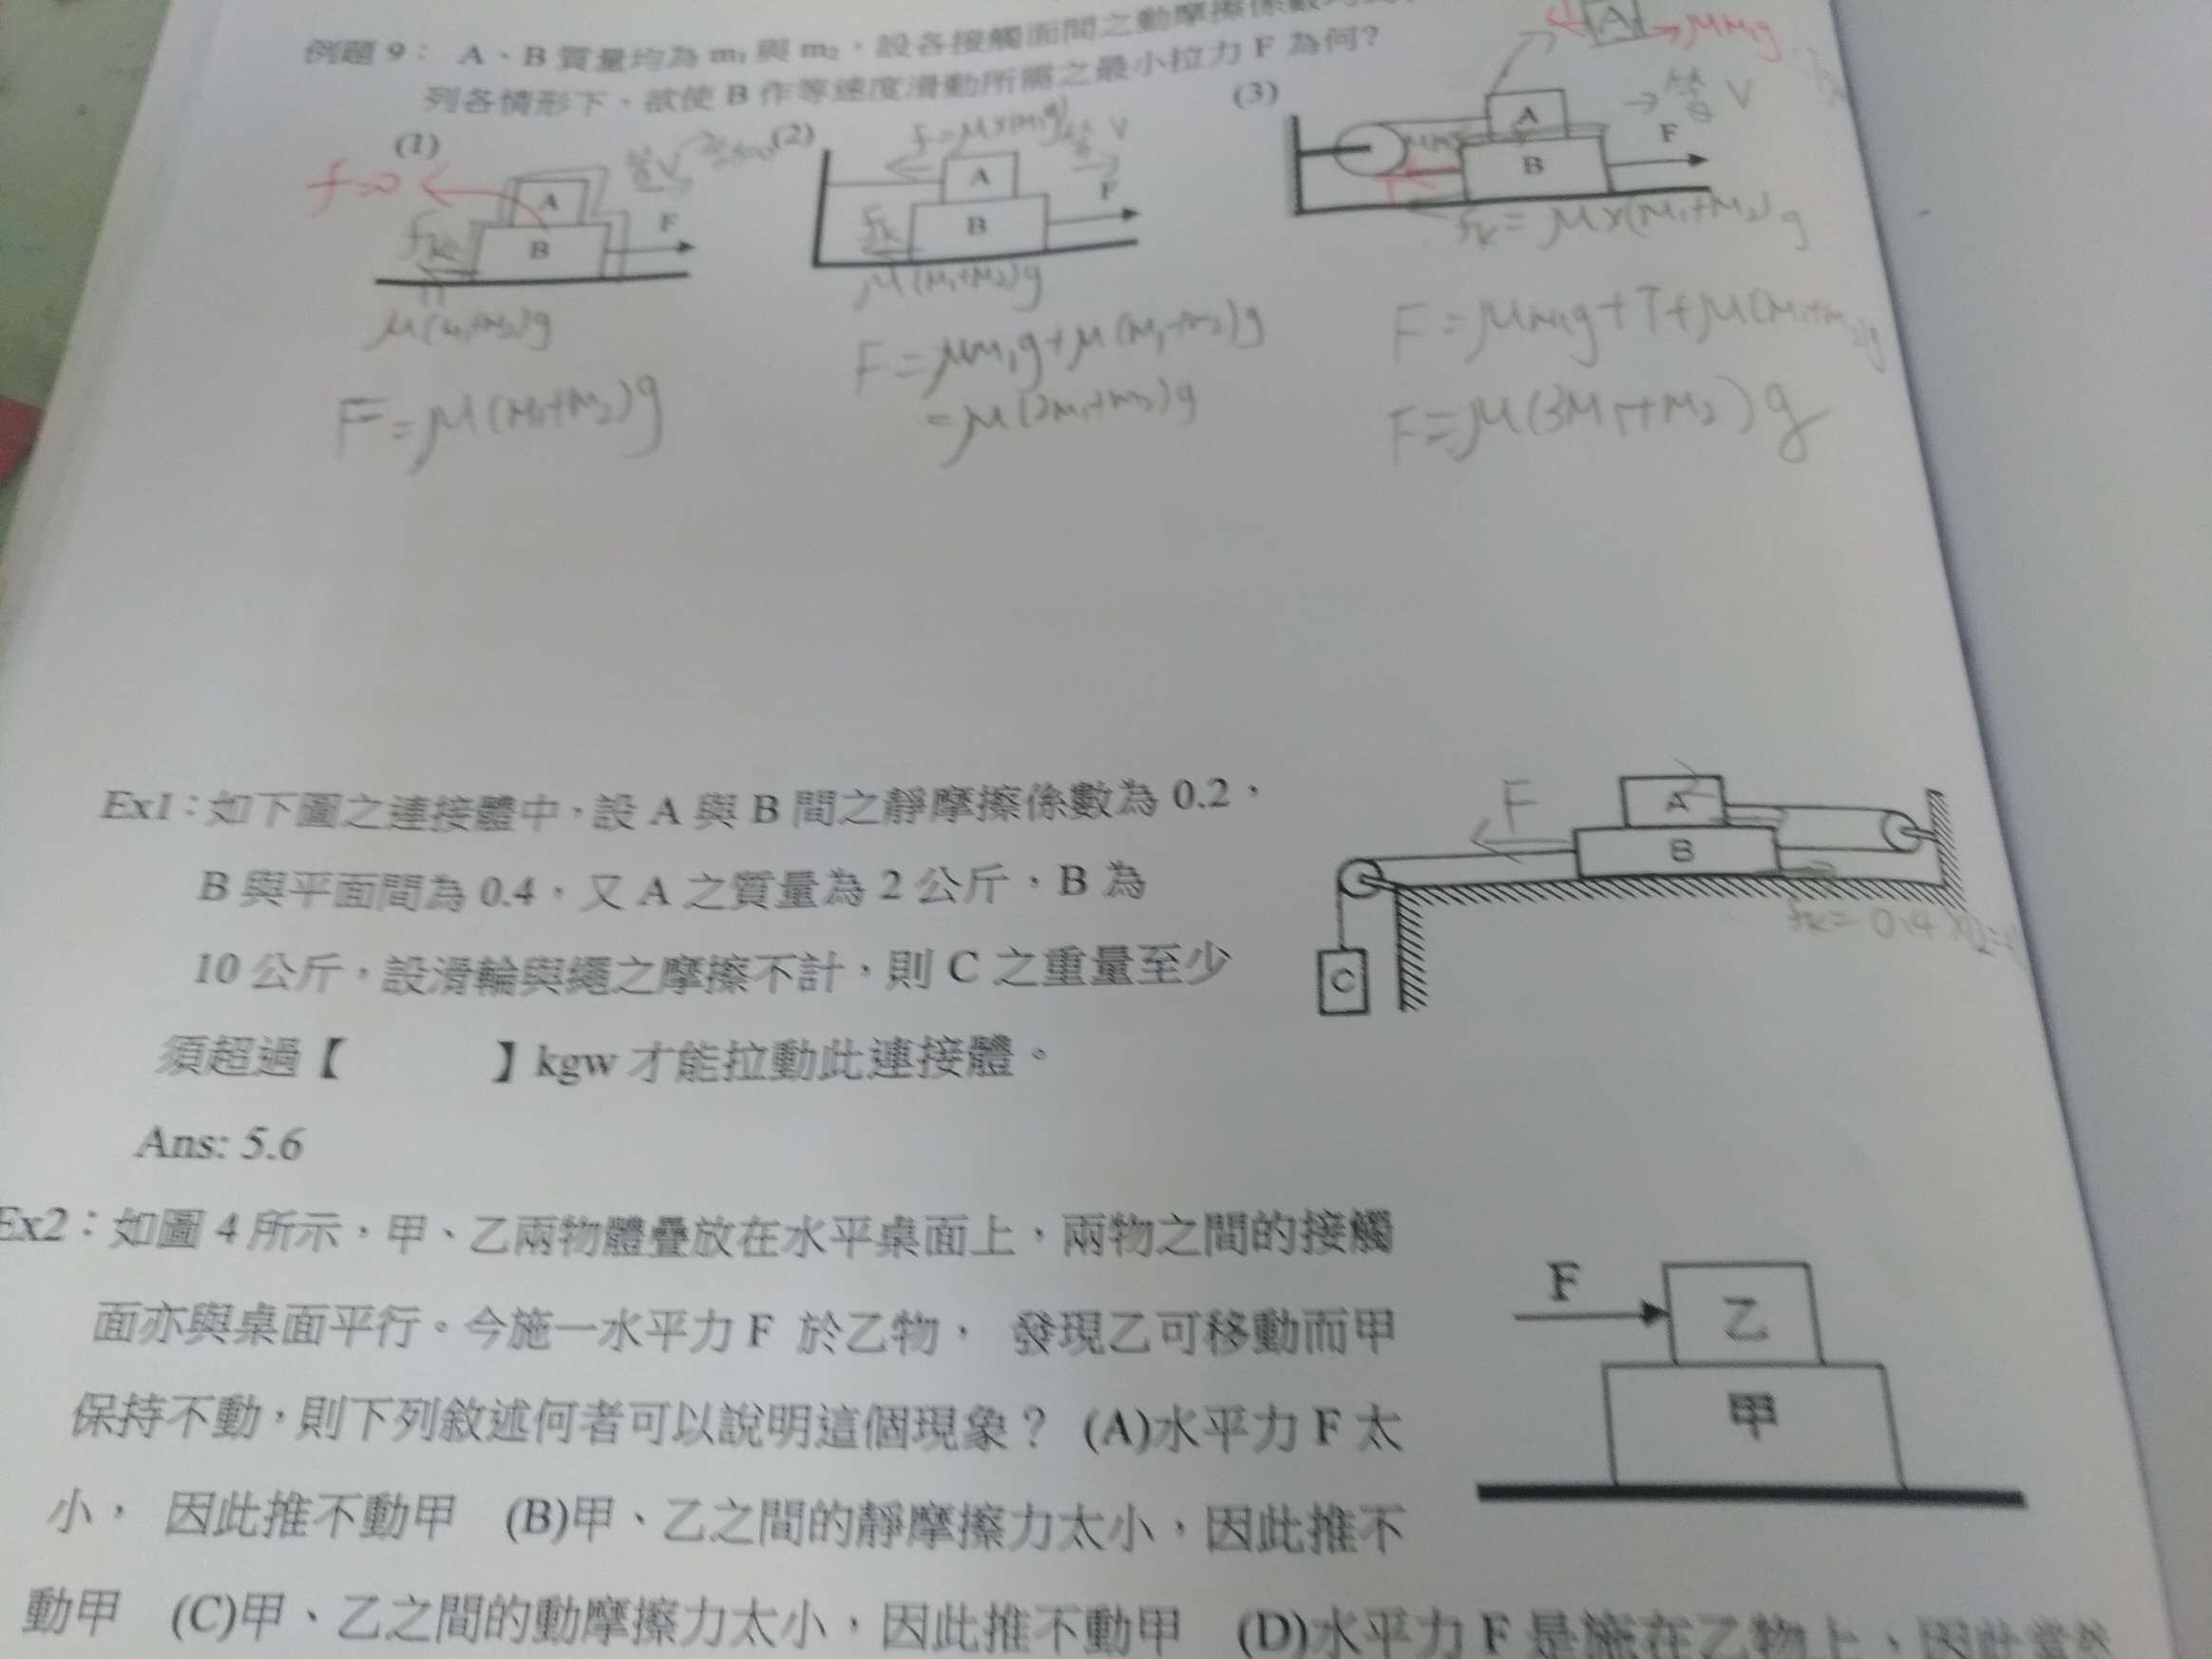 例題 9： A、B 質量均為 m₁ 與 m₂，設各接觸面間之動摩擦係數
列各情形下，欲使 B 作等速度滑動所需之最小拉力 F 為何？
(1)
f=0
A
B
F
fk
μ(m₁+m₂)g
F=μ(m₁+m₂)g
(2)
f=μ×(m₁g)
V
A
B
F
fk
μ(m₁+m₂)g
F=μm₁g+μ(m₁+m₂)g
=μ(2m₁+m₂)g
(3)
A
μm₁g
等 V
A
B
F
T
fk=μ×(m₁+m₂)g
F=μm₁g+T+μ(m₁+m₂)g
F=μ(3m₁+m₂)g
Ex1：如下圖之連接體中，設 A 與 B 間之靜摩擦係數為 0.2，
B 與平面間為 0.4，又 A 之質量為 2 公斤，B 為
10 公斤，設滑輪與繩之摩擦不計，則 C 之重量至少
須超過【 】kgw 才能拉動此連接體。
Ans: 5.6
F
A
B
C
fk=0.4
Ex2：如圖 4 所示，甲、乙兩物體疊放在水平桌面上，兩物之間的接觸
面亦與桌面平行。今施一水平力 F 於乙物， 發現乙可移動而甲
保持不動，則下列敘述何者可以說明這個現象？ (A)水平力 F 太
小， 因此推不動甲 (B)甲、乙之間的靜摩擦力太小，因此推不
動甲 (C)甲、乙之間的動摩擦力太小，因此推不動甲 (D)水平力 F 是施在乙物上，因此當然
F
乙
甲